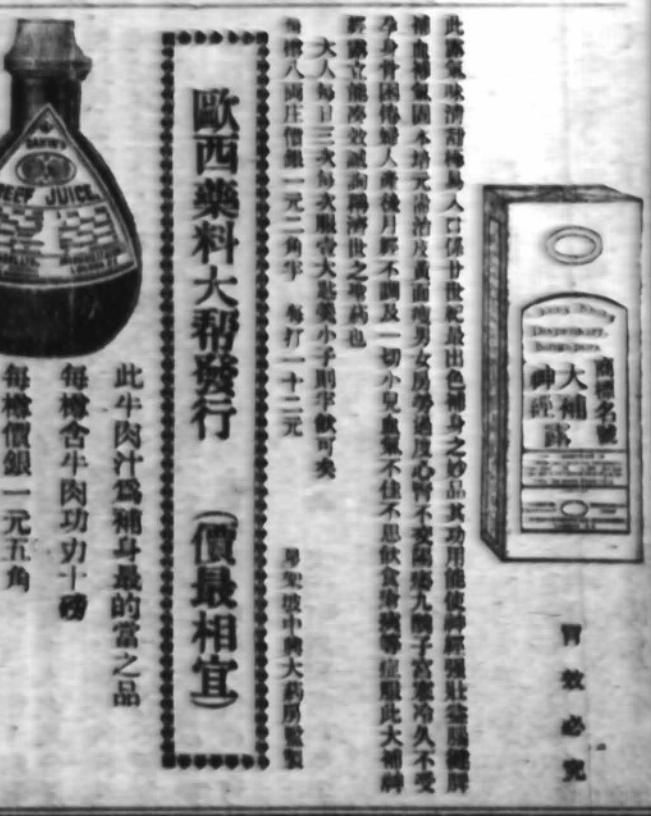 商標名號
大補
神經露
冒效必究
此露氣味清甜極易入口係廿世紀最出色補身之妙品其功用能使神經強壯益腸健脾
補血補氣固本培元常治皮黃面瘦男女房勞過度心腎不交陽
子宮寒冷久不受
孕身骨困倦婦人產後月經不調及一切小兒血氣不佳不思飲食
等症服此大補神
經露立能奏效誠詢
濟世之
藥也
大人每日三次每次服壹大匙羹小子則半飲可矣
每樽八両庄價銀一元二角半 每打一十二元
星架坡中興大藥房監製
歐西藥料大帮發行 (價最相宜)
BEEF JUICE
此牛肉汁爲補身最的當之品
每樽含牛肉功力十磅
每樽價銀一元五角